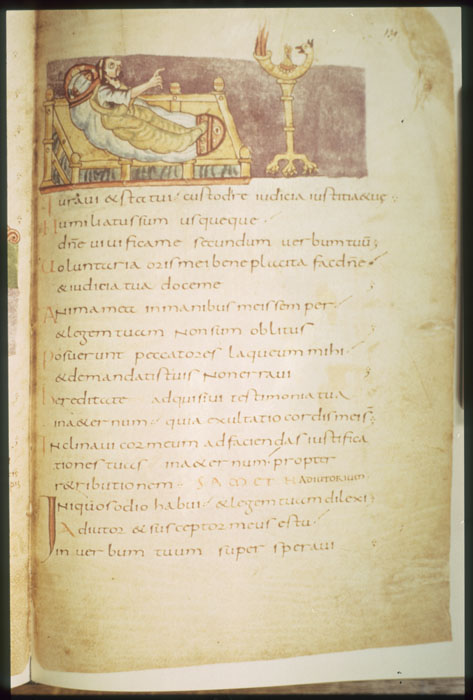 139
Iuravi & statui custodire iudicia iustitiae tuę;
Humiliatus sum usqueque
dne vivifica me secundum verbum tuū;
Voluntaria oris mei beneplacita fac dne
& iudicia tua doce me
Anima mea in manibus meis semper
& legem tuam non sum oblitus
Posuerunt peccatores laqueum mihi
& demandatis tuis non erravi
Hereditate adquisivi testimonia tua
in aeternum quia exultatio cordis mei s;
Inclinavi cor meum ad faciendas iustifica
tiones tuas in aeternum propter
retributionem SAMET H ADIUTORIUM
Iniquos odio habui & legem tuam dilexi;
Adiutor & susceptor meus es tu
in verbum tuum super speravi